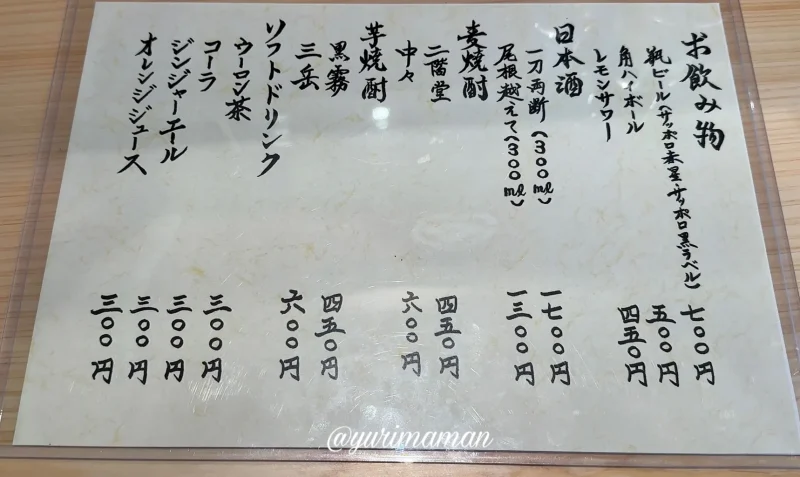 お飲み物
瓶ビール(サッポロ赤星・サッポロ黒ラベル) 七〇〇円
角ハイボール 五〇〇円
レモンサワー 四五〇円
日本酒
一刀両断(300ml) 一七〇〇円
尾根越えて(300ml) 一三〇〇円
麦焼酎
二階堂 四五〇円
中々 六〇〇円
芋焼酎
黒霧 四五〇円
三岳 六〇〇円
ソフトドリンク
ウーロン茶 三〇〇円
コーラ 三〇〇円
ジンジャーエール 三〇〇円
オレンジジュース 三〇〇円
@yurimaman